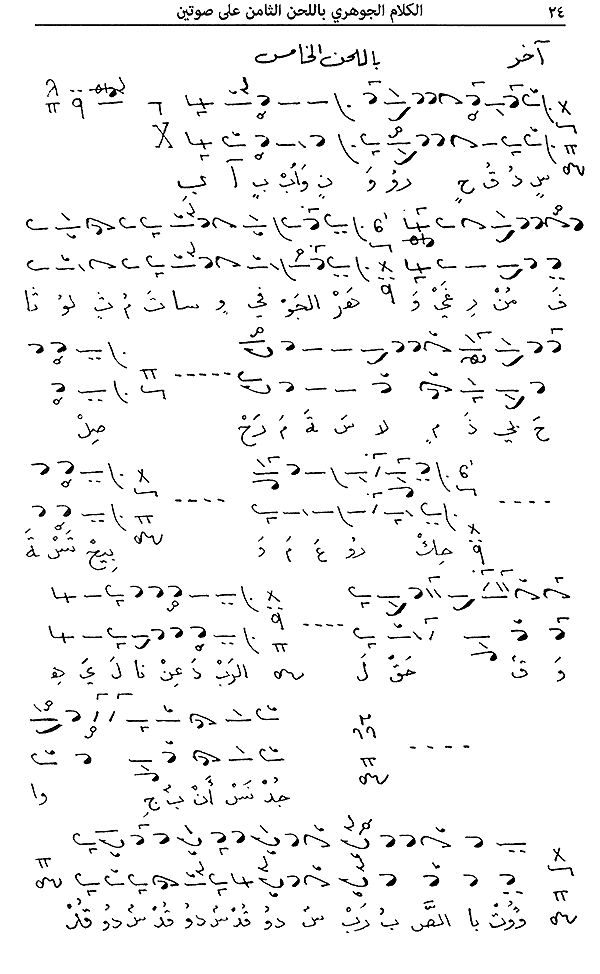 ٢٤ الكلام الجوهري باللحن الثامن على صوتين
آخر باللحن الخامس
سٍ دُ قُ حٍ رو وَ نٍ وَأبْ بٍ آ
فَ مُنْ رِ غَيْ وَ هَرْ الجَوْ في وِ سا تَ مُ ثِ لو ثا
حَ لي ذَ مٍ لا سَ ةَ مَ رَحْ صِلْ
حِكْ رو عَ مَ دَ بِيحْ تَسْ ةَ
وَ قَ حَقْ لَ الرَبْ دَ عِنْ نا لَ يَ هِ
جُدْ نَسْ أَنْ بُ جِ وا
با الصَّ بُ رَبْ سُ دو قُدْ سُ دو قُدْ سُ دو قُدْ